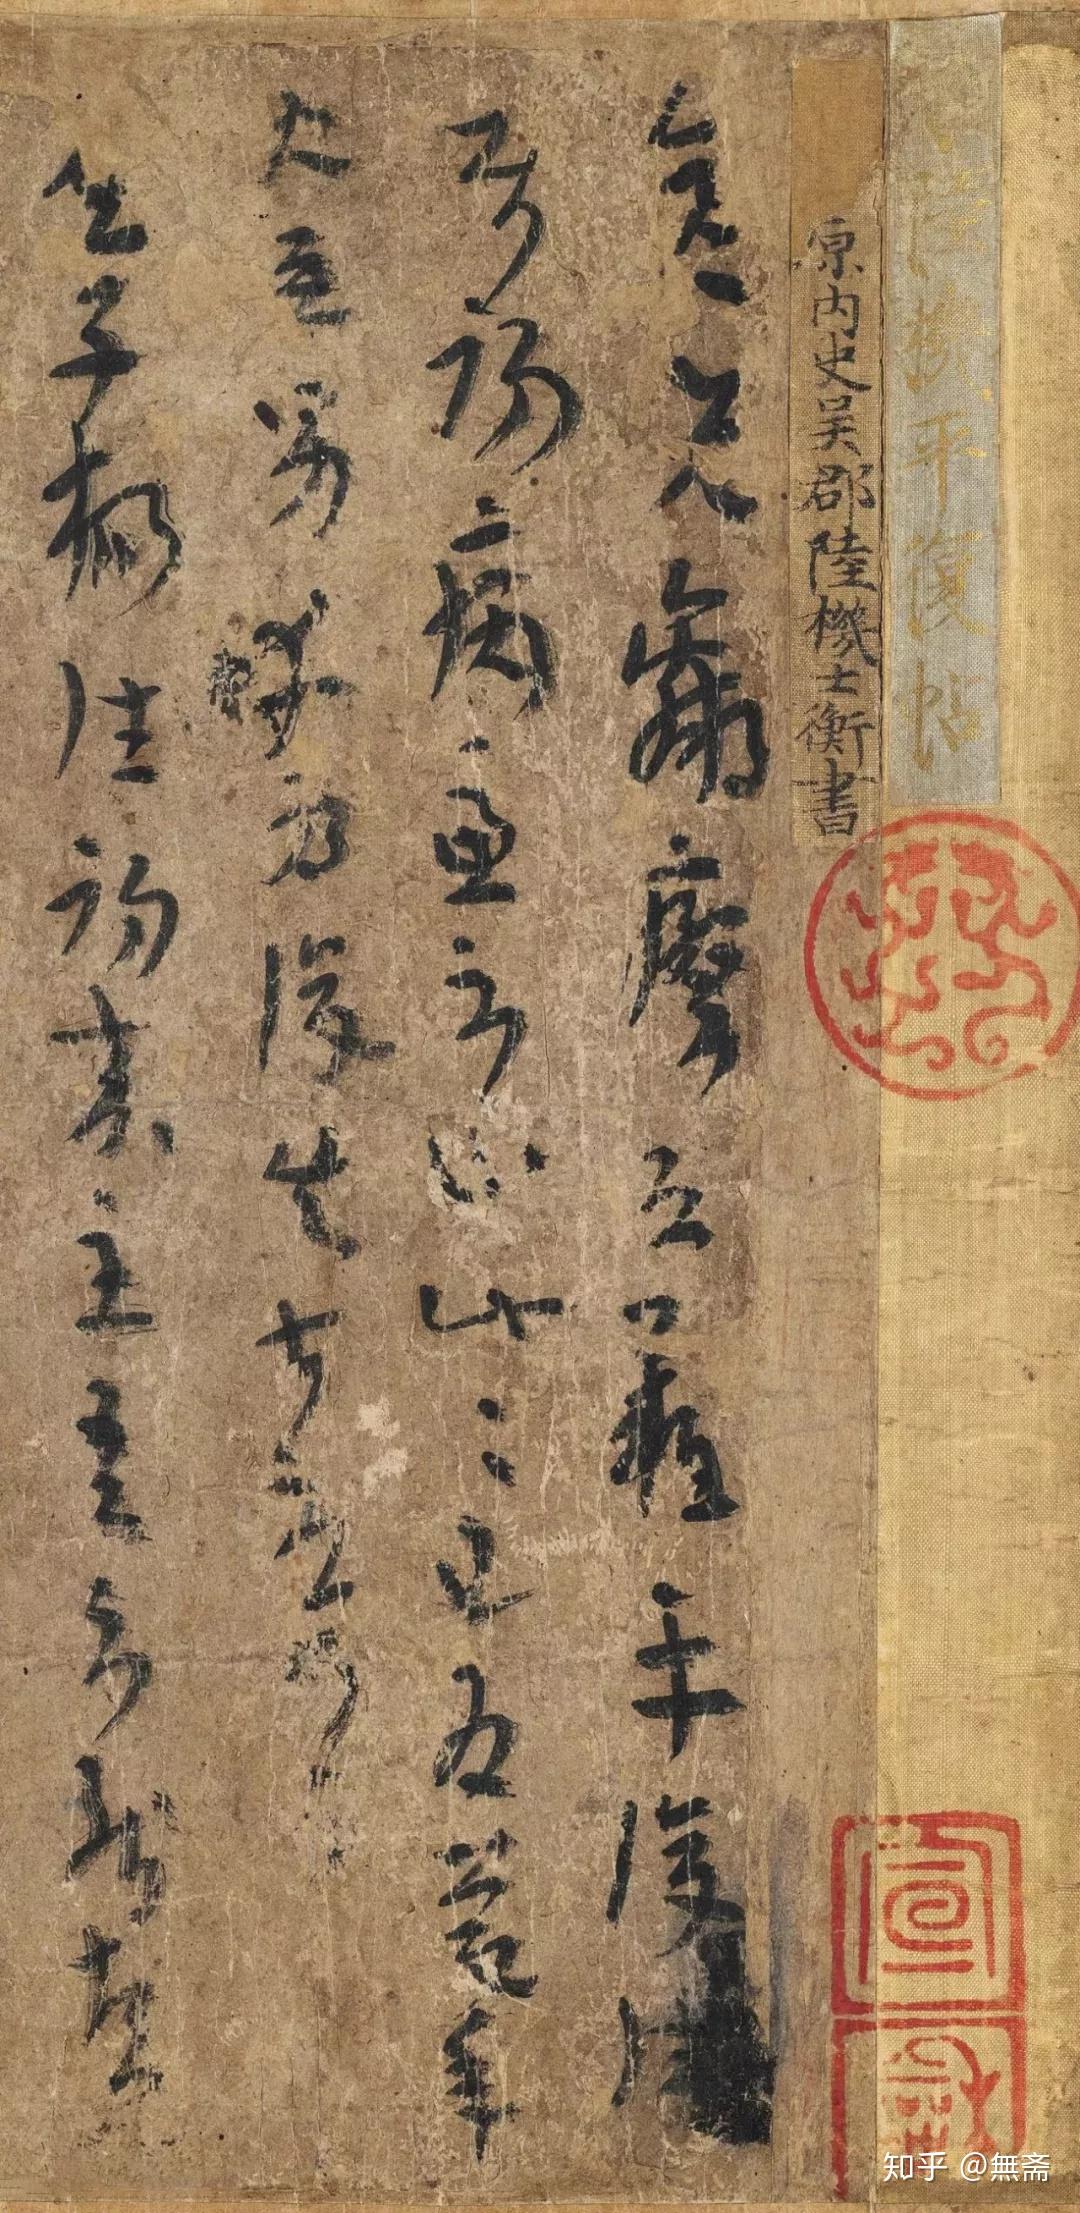 陸機平復帖
原内史吳郡陸機士衡書
彦先羸瘵恐難平復往
屬初病慮不止此此已為慶承
使唯男幸為復失前憂耳
吳子楊往初來主吾不能盡
知乎 @無斋